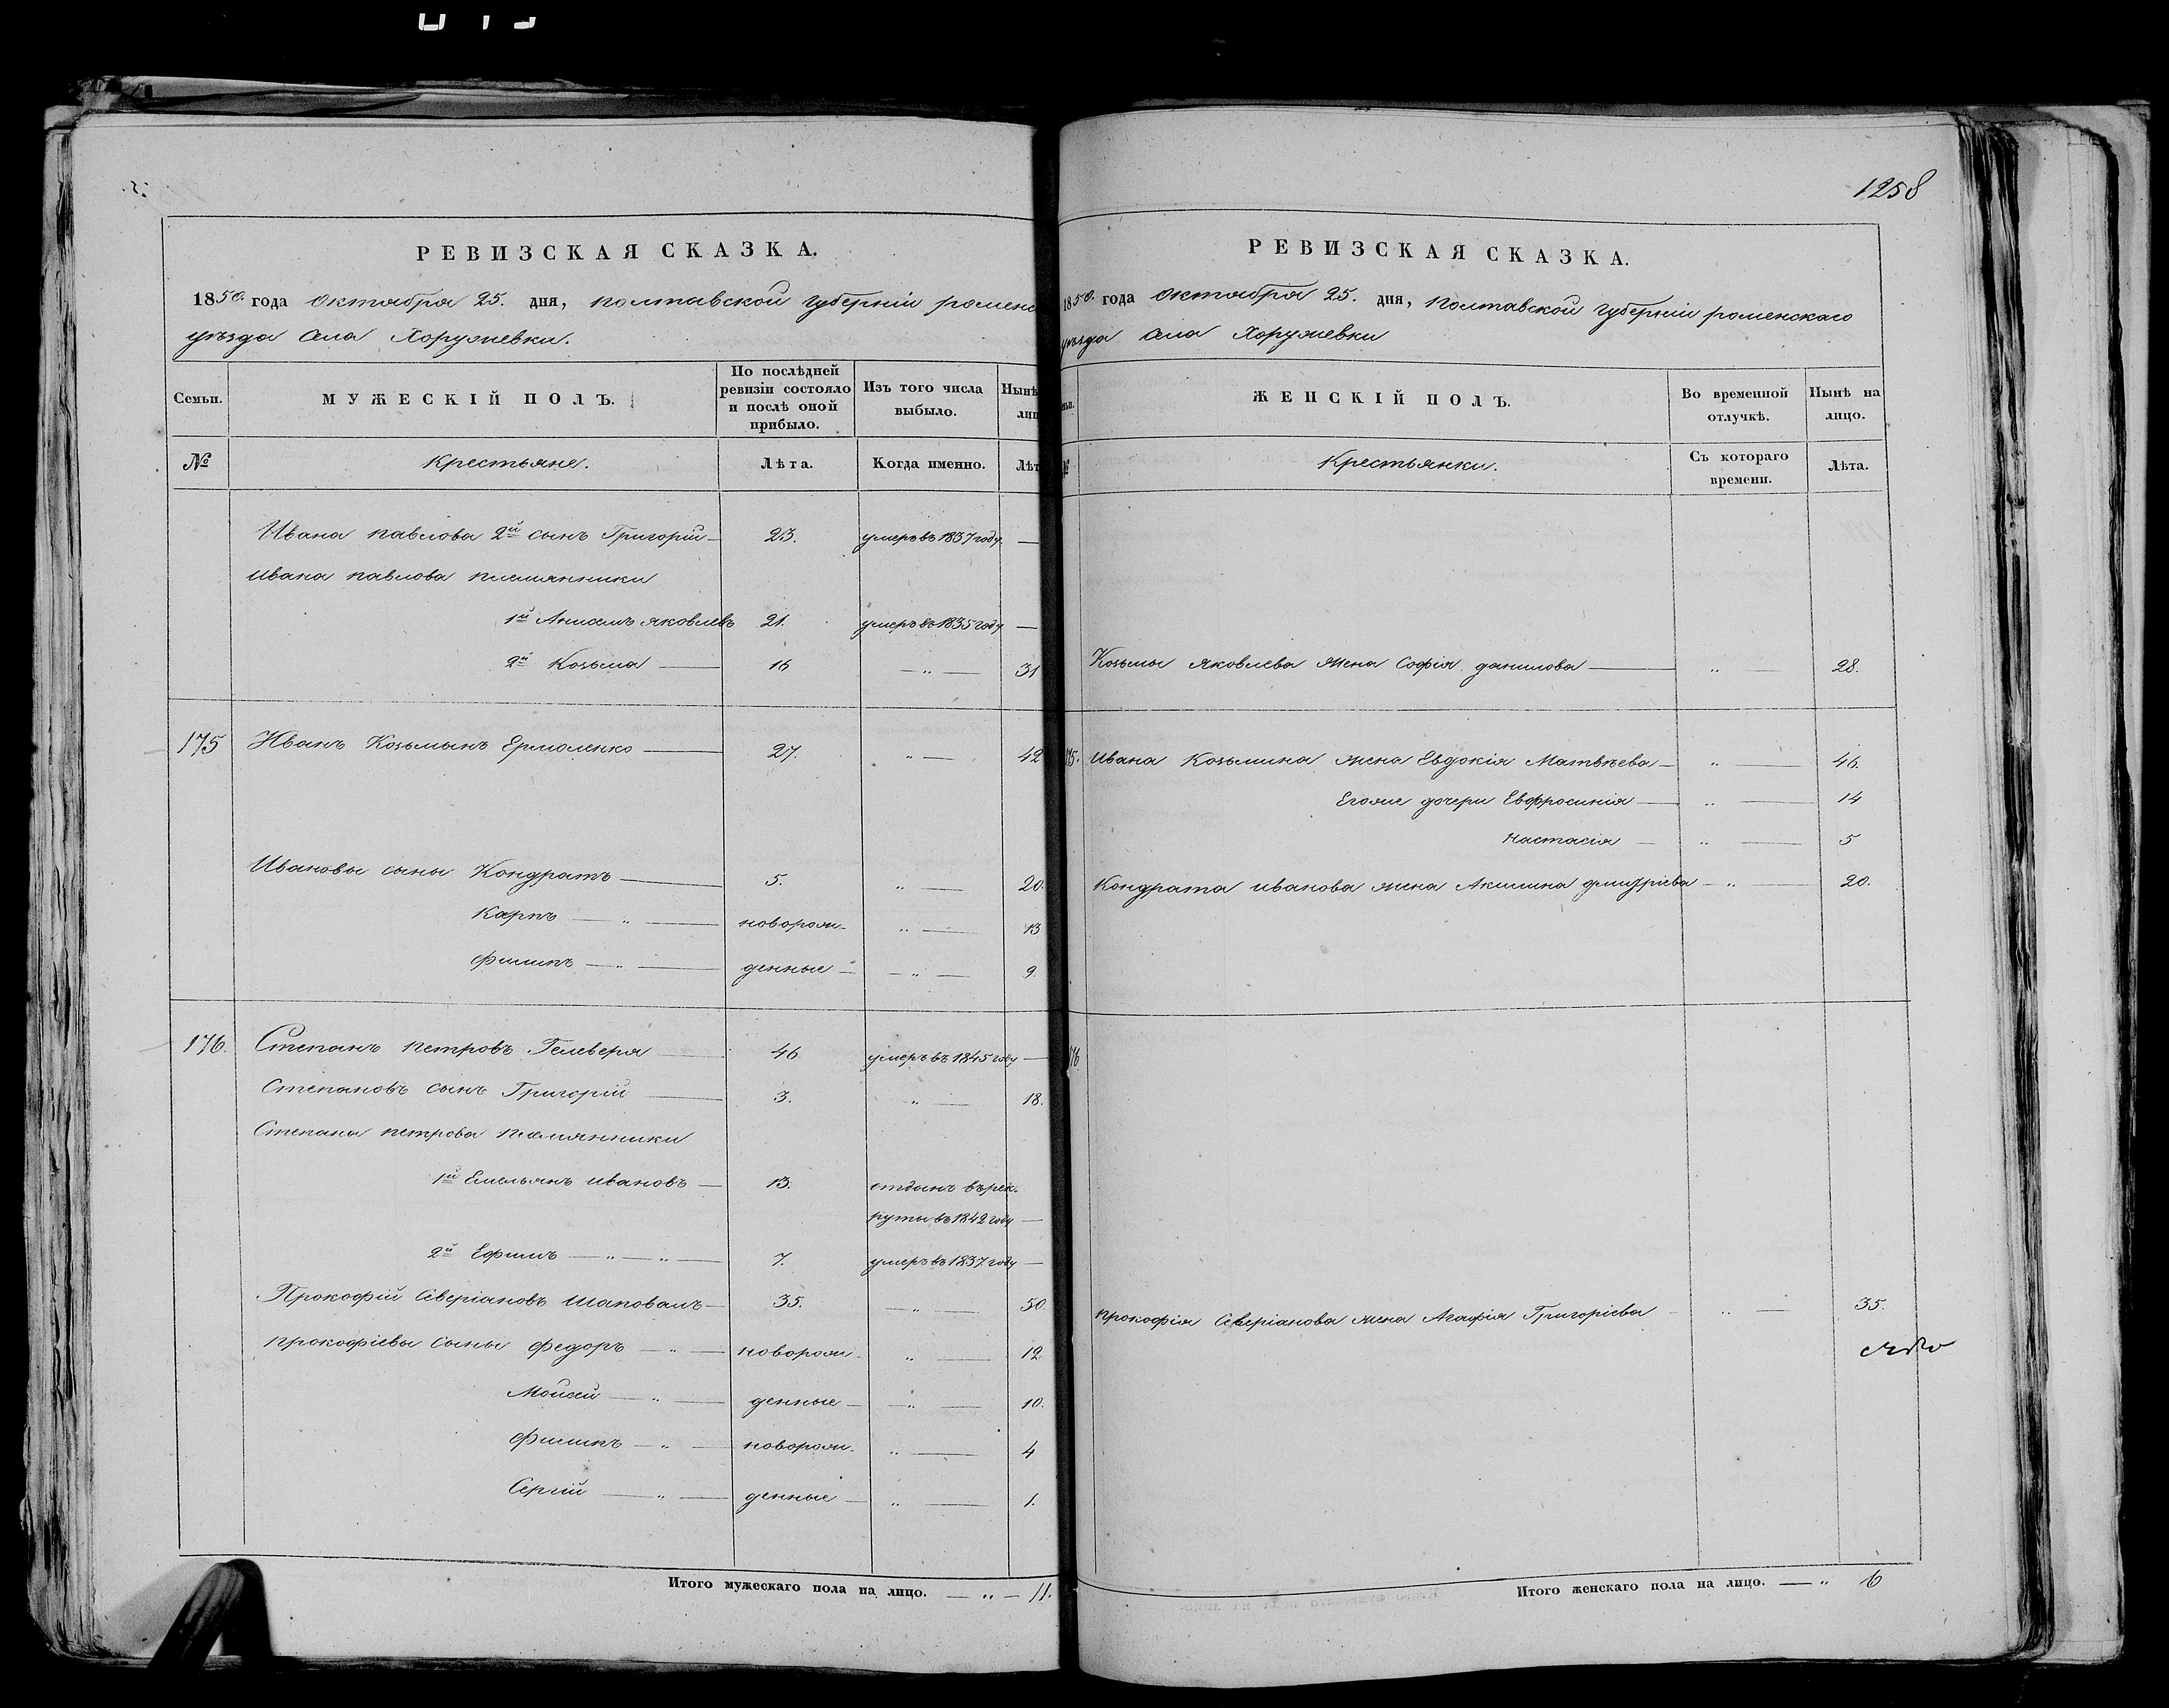 РЕВИЗСКАЯ СКАЗКА.
1850. года октября 25. дня, полтавской губерніи роменс
уѣзда села Хоружевки.
Семьи. МУЖЕСКІЙ ПОЛЪ. По послѣдней ревизіи состояло и послѣ оной прибыло. Изъ того числа выбыло. Нынѣ лиц
№ Крестьяне. Лѣта. Когда именно. Лѣт
Ивана павлова 2й сынъ Григорій — 23. умеръ въ 1837 году —
Ивана павлова племянники
1й Анисимъ яковлевъ 21. умеръ въ 1835 году —
2й Козьма — 16 — „ — 31
175 Иванъ Козьминъ Ермоленко — 27. „ — 42
Ивановы сыны Кондратъ — 5. „ — 20.
Карпъ — „ — новорож- „ — 13
Филипъ — „ — денные — — „ — 9.
176. Степанъ петровъ Гелеверя — 46 умеръ въ 1845 году —
Степановъ сынъ Григорій — 3. „ — 18.
Степана петрова племянники
1й Емельянъ ивановъ — 13. отданъ въ рек-
руты въ 1842 году —
2й Ефимъ — „ — „ — 7. умеръ въ 1837. году —
Прокофій Севeріановъ Шаповалъ — 35. — „ — 50.
прокофіевы сыны Федоръ — „ — новорож- „ — 12
Мойсей — „ — денные — — „ — 10.
Филипъ — „ — новорож- „ — 4
Сергій — „ — денные — „ — 1.
Итого мужескаго пола на лицо. — „ — 11.
1258
РЕВИЗСКАЯ СКАЗКА.
1850. года октября 25. дня, полтавской губерніи роменскаго
уѣзда села Хоружевки
ЖЕНСКІЙ ПОЛЪ. Во временной отлучкѣ. Нынѣ на лицо.
№ Крестьянки. Съ котораго времени. Лѣта.
Козьмы яковлева жена Софія данилова — „ — 28.
175. Ивана Козьмина жена Евдокія Матвѣева — „ — 46.
Егоже дочери Евфросинія — „ — 14
Настасія — „ — 5
Кондрата иванова жена Акилина дмитріева — „ — 20.
176
прокофія Севeріанова жена Агафія Григоріева „ — 35.
Итого женскаго пола на лицо. — „ 6